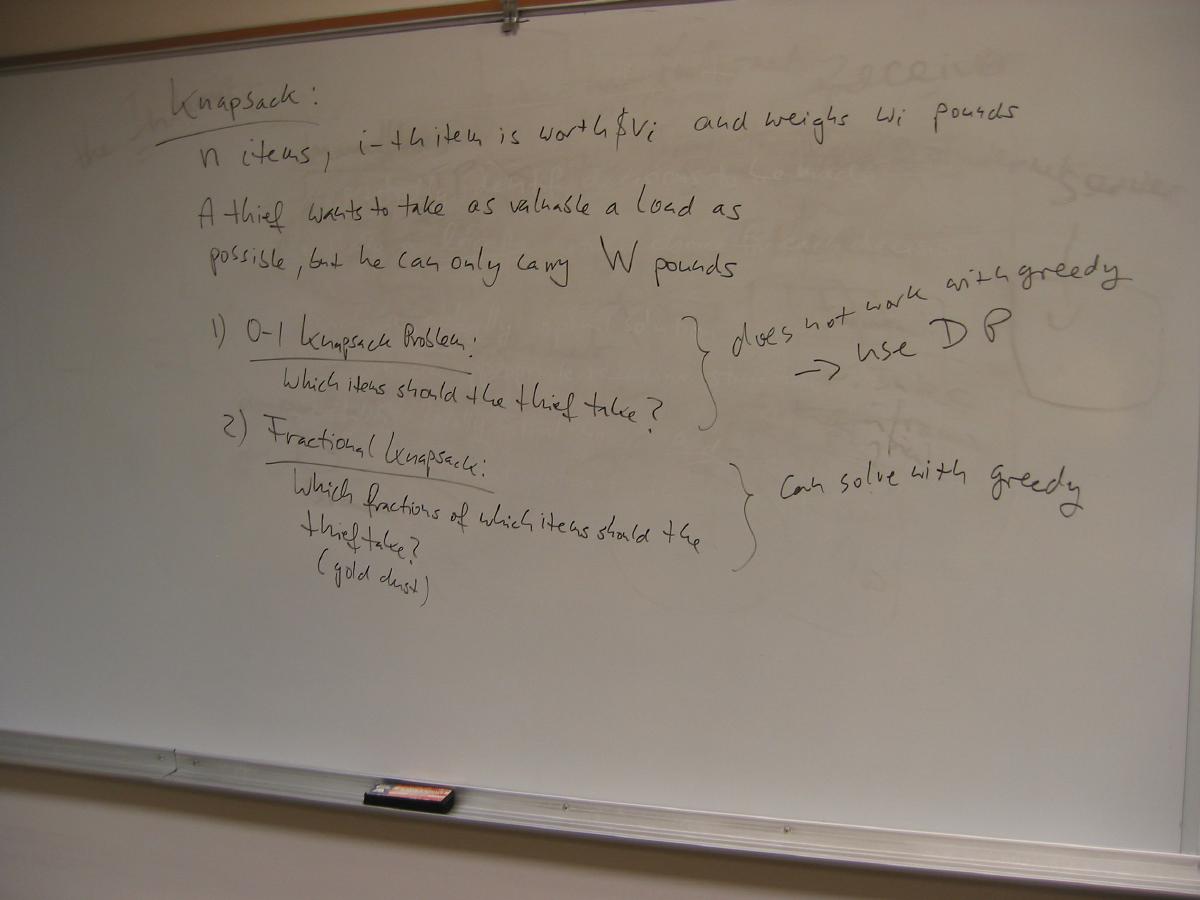 Knapsack:
n items, i-th item is worth $vi and weighs wi pounds
A thief wants to take as valuable a load as
possible, but he can only carry W pounds
1) 0-1 Knapsack Problem:
Which items should the thief take?
} does not work with greedy
→ use DP
2) Fractional Knapsack:
Which fractions of which items should the
thief take?
(gold dust)
} can solve with greedy